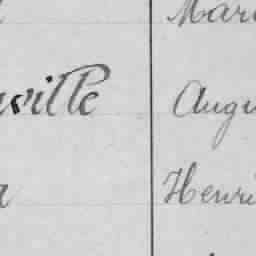 Mar
ville Augu
Henri